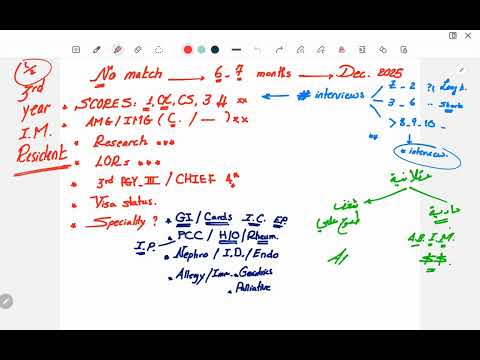 No match → 6-7 months → Dec. 2025
3rd year I.M. Resident
* SCORES: 1, CK, CS, 3 4 xx ← # interviews
1 - 2 ?!
3 - 6
>8-9-10-
* interview.
* AMG/IMG (C. / —) xx
* Research
* LORs
* 3rd PGY_III / CHIEF
* Visa status.
* Speciality ?
* GI / Cards I.C. EP.
I.P.
* PCC / H/O / Rheum.
* Nephro / I.D. / Endo
* Allergy / Imm. Geriatrics
* Palliative
عقلانية
مادية
A.B.I.M.
$$.
شغف